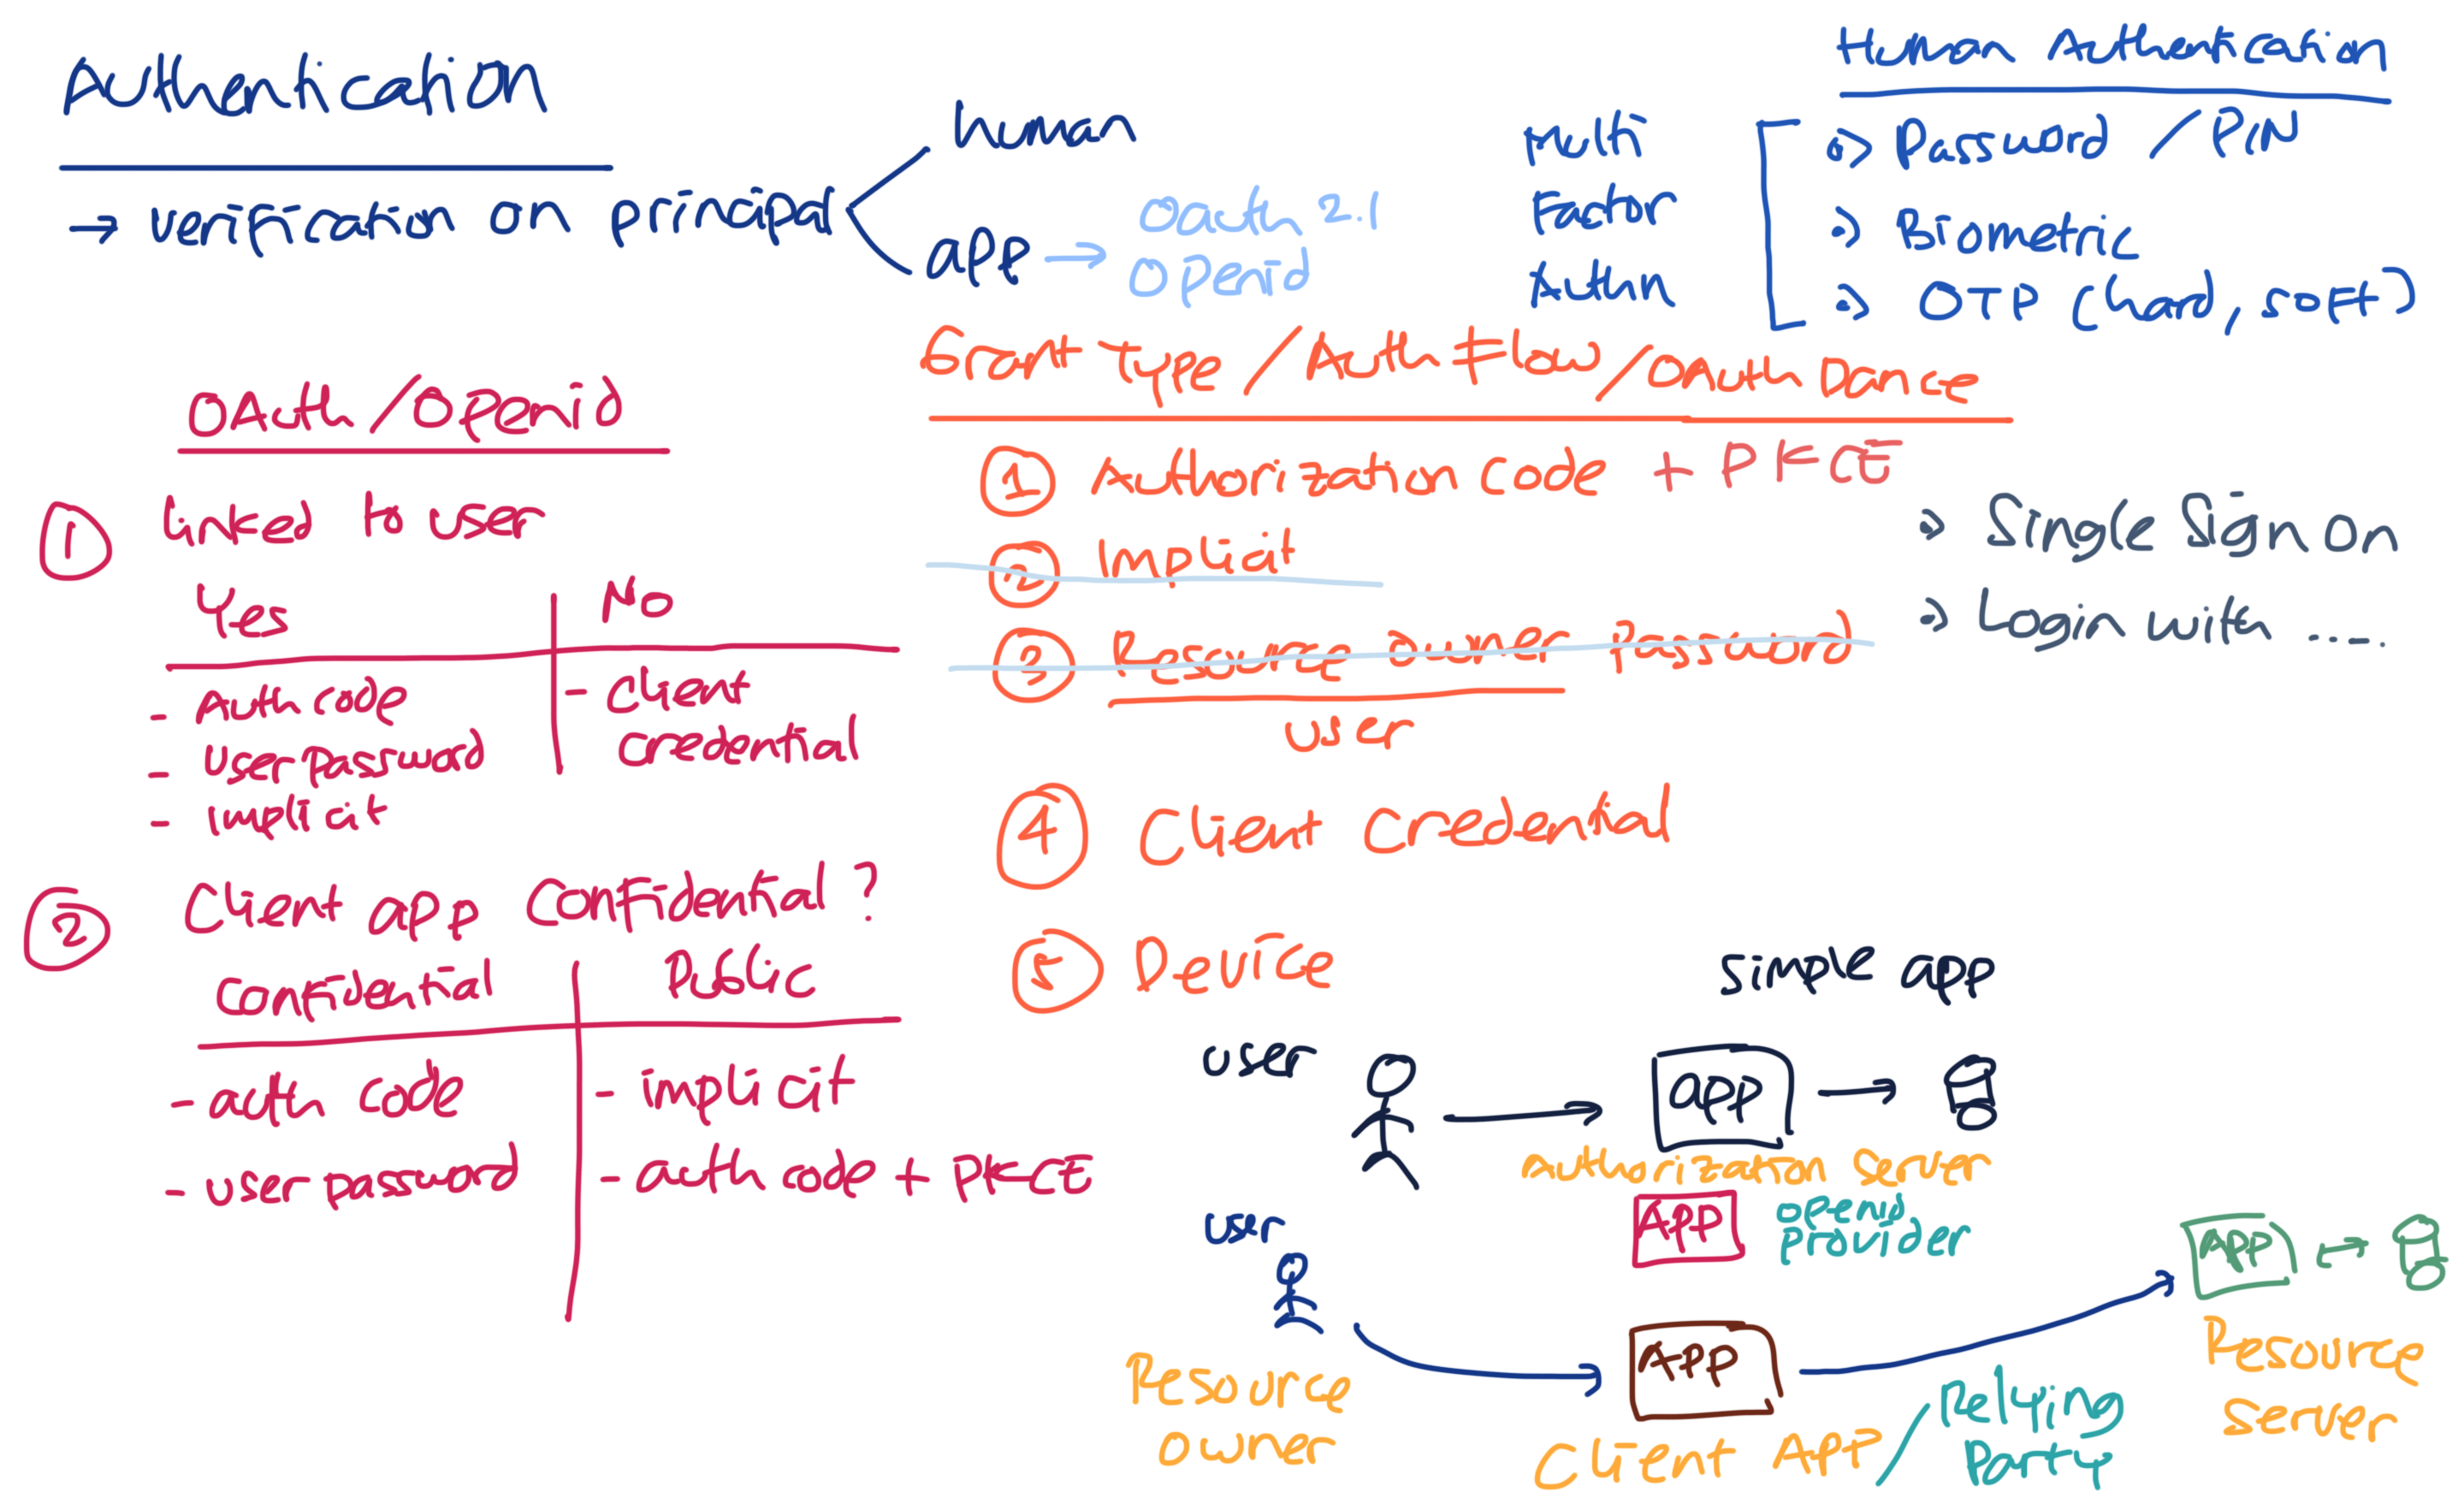 Authentication
→ verification on principal
human
app → Oauth 2.1
Openid
Human Authentication
Multi
Factor
Authn
Password / PIN
Biometric
OTP (hard, soft)
OAuth / Openid
① linked to user
Yes
No
- Auth code
- User password
- Implicit
- Client
credential
② Client app Confidential ?
Confidential
Public
- auth code
- user password
- implicit
- auth code + PKCE
Grant Type / Auth Flow / OAuth Dance
① Authorization code + PKCE
② Implicit
③ Resource owner Password
user
④ Client Credential
⑤ Device
Single Sign On
Login with .....
simple app
user
app
Authorization Server
APP
openid
provider
user
Resource
owner
APP
Client App / Relying
Party
APP
Resource
Server